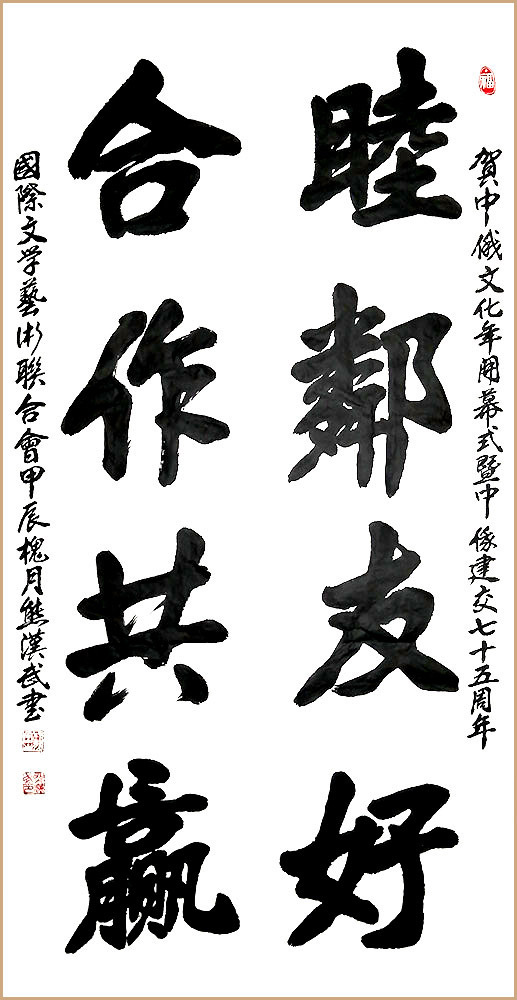 福
賀中俄文化年開幕式暨中俄建交七十五周年
睦鄰友好
合作共贏
國際文学藝術聯合會甲辰槐月熊漢武書